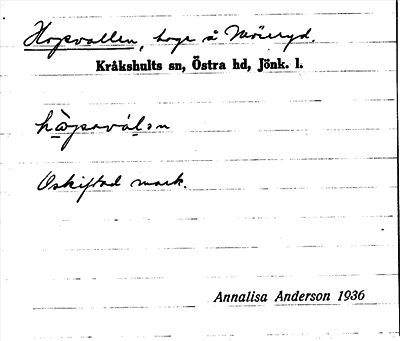 Hopsvallen, hage å Möneryd.
Kråkshults sn, Östra hd, Jönk. l.
Oskiftad mark.
Annalisa Anderson 1936